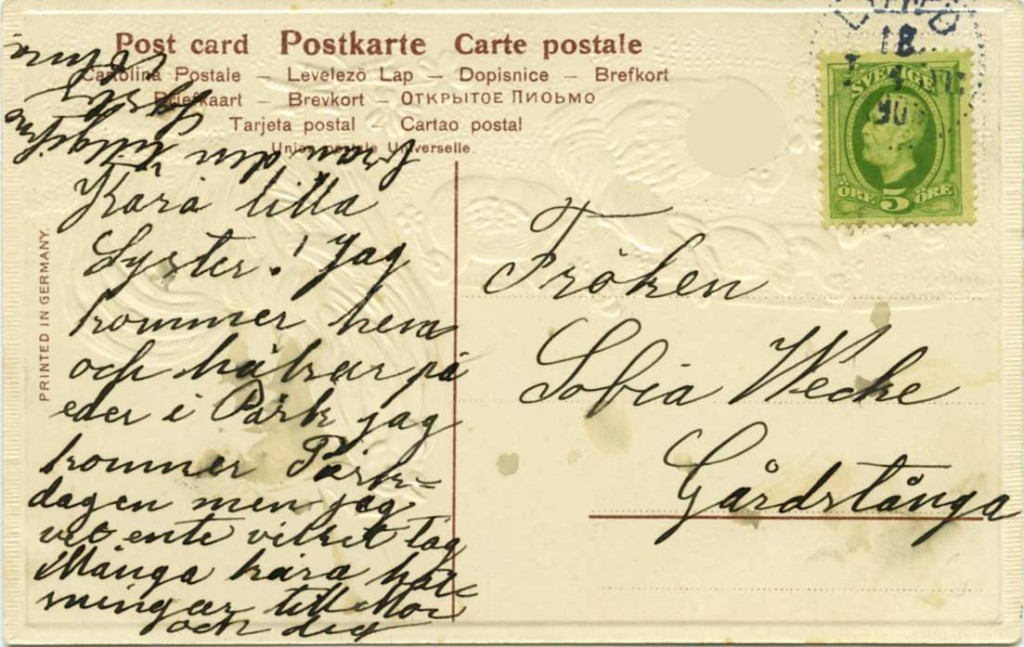 Post card Postkarte Carte postale
Cartolina Postale – Levelezö Lap – Dopisnice – Brefkort
Briefkaart – Brevkort – ОТКРЫТОЕ ПИСЬМО
Tarjeta postal – Cartao postal
Union postale Universelle
PRINTED IN GERMANY.
Kära lilla
Syster! Jag
kommer hem
och hälsar på
eder i Påsk jag
kommer Påsk=
dagen men jag
vet ente vilket Tåg
Många kära häl=
ningar till Mor
och dig
från din tillgifne
Syster
SVERIGE
ÖRE 5 ÖRE
Fröken
Sofia Wecke
Gårdstånga